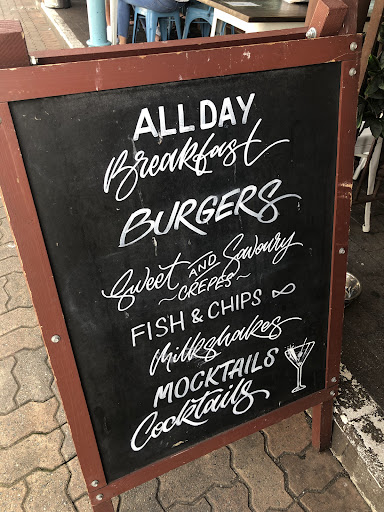 ALL DAY
Breakfast
BURGERS
Sweet AND Savoury
~CREPES~
FISH & CHIPS
Milkshakes
MOCKTAILS
Cocktails